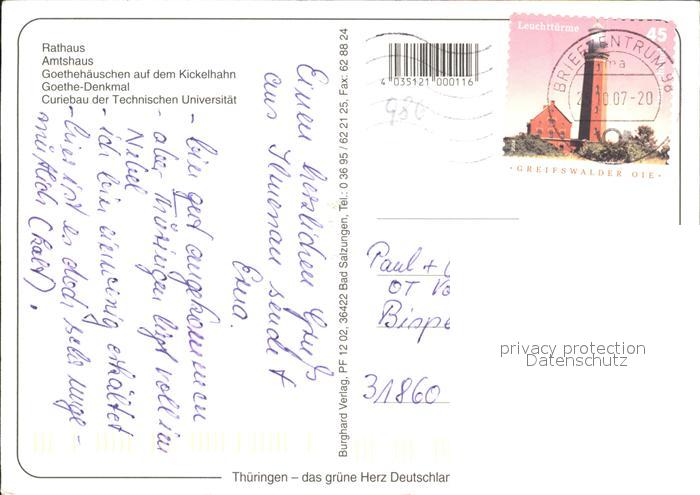 Rathaus
Amtshaus
Goethehäuschen auf dem Kickelhahn
Goethe-Denkmal
Curiebau der Technischen Universität
Einen herzlichen Gruß
aus Ilmenau sendet
Erna.
- bin gut angekommen
- aber Thüringen liegt voll im
Nebel
- ich bin einig erkältet
- hier ist es doch sehr unge-
mütlich (kalt).
Burghard Verlag, PF 12 02, 36422 Bad Salzungen, Tel.: 0 36 95 / 62 21 25, Fax: 62 88 24
4 035121 000116
980
Leuchttürme
45
BRIEFZENTRUM 98
10.07-20
GREIFSWALDER OIE
Paul +
OT
Bispe
31860
privacy protection
Datenschutz
Thüringen – das grüne Herz Deutschlan